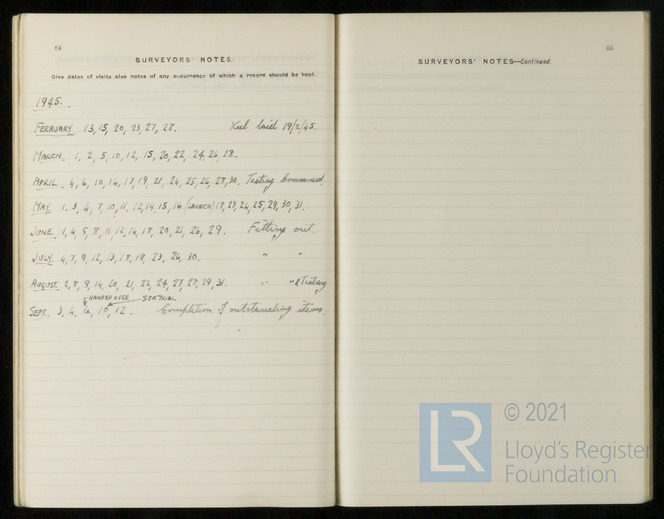 64
SURVEYORS' NOTES.
Give dates of visits also notes of any occurrence of which a record should be kept.
1945.
FEBRUARY 13, 15, 20, 23, 27, 28. Keel laid 19/2/45.
MARCH. 1, 2, 5, 10, 12, 15, 20, 22, 24, 26, 28.
APRIL. 4, 6, 10, 14, 17, 19, 21, 24, 25, 26, 28, 30. Testing Commenced.
MAY. 1, 3, 4, 7, 10, 11, 12, 14, 15, 16 (LAUNCH) 17, 23, 24, 25, 29, 30, 31.
JUNE. 1, 4, 5, 8, 11, 12, 14, 18, 20, 21, 26, 29. Fitting out.
JULY. 4, 7, 9, 12, 13, 18, 19, 23, 26, 30. " "
AUGUST. 2, 8, 9, 14, 20, 21, 22, 24, 27, 28, 29, 31. " " & Testing
HANDED OVER SEA TRIAL
SEPT. 3, 4, 6, 10, 12. Completion of outstanding items.
65
SURVEYORS' NOTES—Continued.
LR
© 2021
Lloyd's Register
Foundation